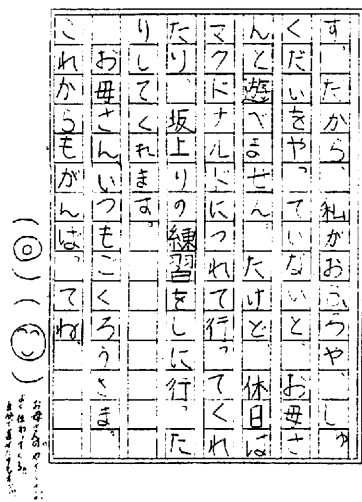 す。たから、私がおふろや、しゅ
くだいをやっていないと、お母さ
んと遊べません。たけと、休日は
マクドナルドにつれて行ってくれ
たり、坂上りの練習をしに行った
りしてくれます。
お母さん、いつもごくろうさま。
これからもがんばってね。